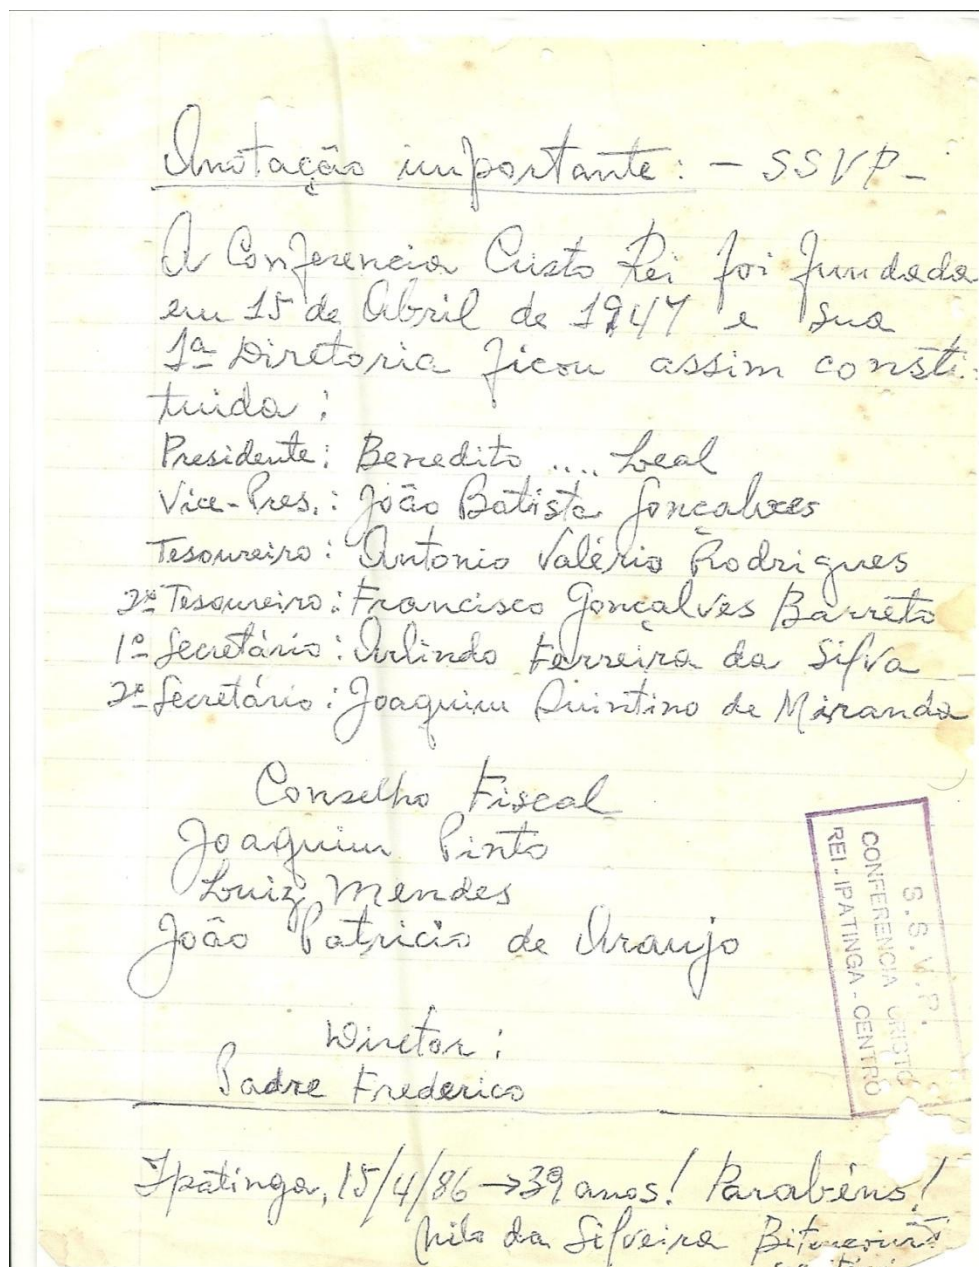 Anotação importante: - SSVP -
A Conferencia Cristo Rei foi fundada
em 15 de Abril de 1947 e sua
1ª Diretoria ficou assim consti-
tuida:
Presidente: Benedito .... Leal
Vice-Pres.: João Batista Gonçalves
Tesoureiro: Antonio Valério Rodrigues
2º Tesoureiro: Francisco Gonçalves Barreto
1º Secretário: Arlindo Ferreira da Silva
2º Secretário: Joaquim Quintino de Miranda
Conselho Fiscal
Joaquim Pinto
Luiz Mendes
João Patricio de Araujo
S.S.V.P.
CONFERENCIA CRISTO
REI - IPATINGA - CENTRO
Diretor:
Padre Frederico
Ipatinga, 15/4/86 → 39 anos! Parabéns!
Nilo da Silveira